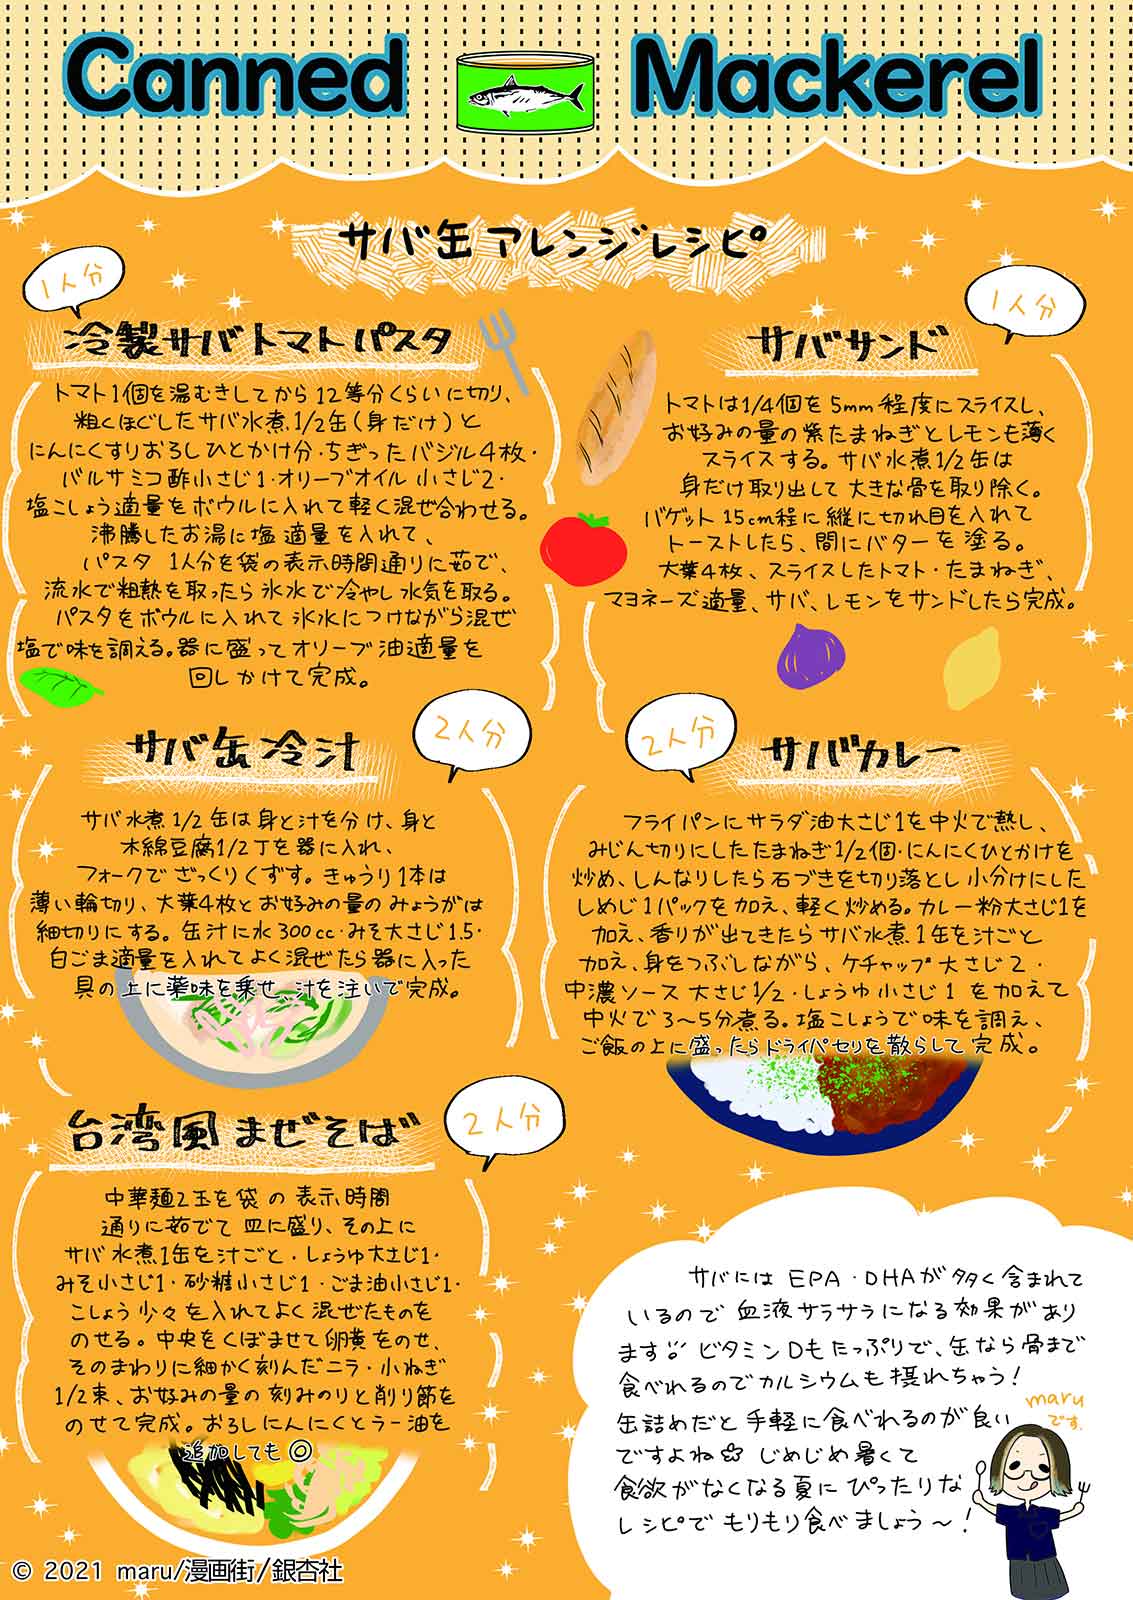 Canned Mackerel
サバ缶アレンジレシピ
1人分
冷製サバトマトパスタ
トマト1個を湯むきしてから12等分くらいに切り、
粗くほぐしたサバ水煮1/2缶(身だけ)と
にんにくすりおろしひとかけ分・ちぎったバジル4枚・
バルサミコ酢小さじ1・オリーブオイル小さじ2・
塩こしょう適量をボウルに入れて軽く混ぜ合わせる。
沸騰したお湯に塩適量を入れて、
パスタ 1人分を袋の表示時間通りに茹で、
流水で粗熱を取ったら氷水で冷やし水気を取る。
パスタをボウルに入れて氷水につけながら混ぜ
塩で味を調える。器に盛ってオリーブ油適量を
回しかけて完成。
1人分
サバサンド
トマトは1/4個を5mm程度にスライスし、
お好みの量の紫たまねぎとレモンも薄く
スライスする。サバ水煮1/2缶は
身だけ取り出して大きな骨を取り除く。
バゲット15cm程に縦に切れ目を入れて
トーストしたら、間にバターを塗る。
大葉4枚、スライスしたトマト・たまねぎ、
マヨネーズ適量、サバ、レモンをサンドしたら完成。
2人分
サバ缶冷汁
サバ水煮1/2缶は身と汁を分け、身と
木綿豆腐1/2丁を器に入れ、
フォークでざっくりくずす。きゅうり1本は
薄い輪切り、大葉4枚とお好みの量のみょうがは
細切りにする。缶汁に水300cc・みそ大さじ1.5・
白ごま適量を入れてよく混ぜたら器に入った
具の上に薬味を乗せ、汁を注いで完成。
2人分
サバカレー
フライパンにサラダ油大さじ1を中火で熱し、
みじん切りにしたたまねぎ1/2個・にんにくひとかけを
炒め、しんなりしたら石づきを切り落とし小分けにした
しめじ1パックを加え、軽く炒める。カレー粉大さじ1を
加え、香りが出てきたらサバ水煮1缶を汁ごと
加え、身をつぶしながら、ケチャップ大さじ2・
中濃ソース大さじ1/2・しょうゆ小さじ1を加えて
中火で3〜5分煮る。塩こしょうで味を調え、
ご飯の上に盛ったらドライパセリを散らして完成。
2人分
台湾風まぜそば
中華麺2玉を袋の表示時間
通りに茹でて皿に盛り、その上に
サバ水煮1缶を汁ごと・しょうゆ大さじ1・
みそ小さじ1・砂糖小さじ1・ごま油小さじ1・
こしょう少々を入れてよく混ぜたものを
のせる。中央をくぼませて卵黄をのせ、
そのまわりに細かく刻んだニラ・小ねぎ
1/2束、お好みの量の刻みのりと削り節を
のせて完成。おろしにんにくとラー油を
追加しても◎
サバにはEPA・DHAが多く含まれて
いるので血液サラサラになる効果があり
ます ビタミンDもたっぷりで、缶なら骨まで
食べれるのでカルシウムも摂れちゃう!
缶詰めだと手軽に食べれるのが良い
ですよね じめじめ暑くて
食欲がなくなる夏にぴったりな
レシピでもりもり食べましょう〜!
maru
です.
© 2021 maru/漫画街/銀杏社